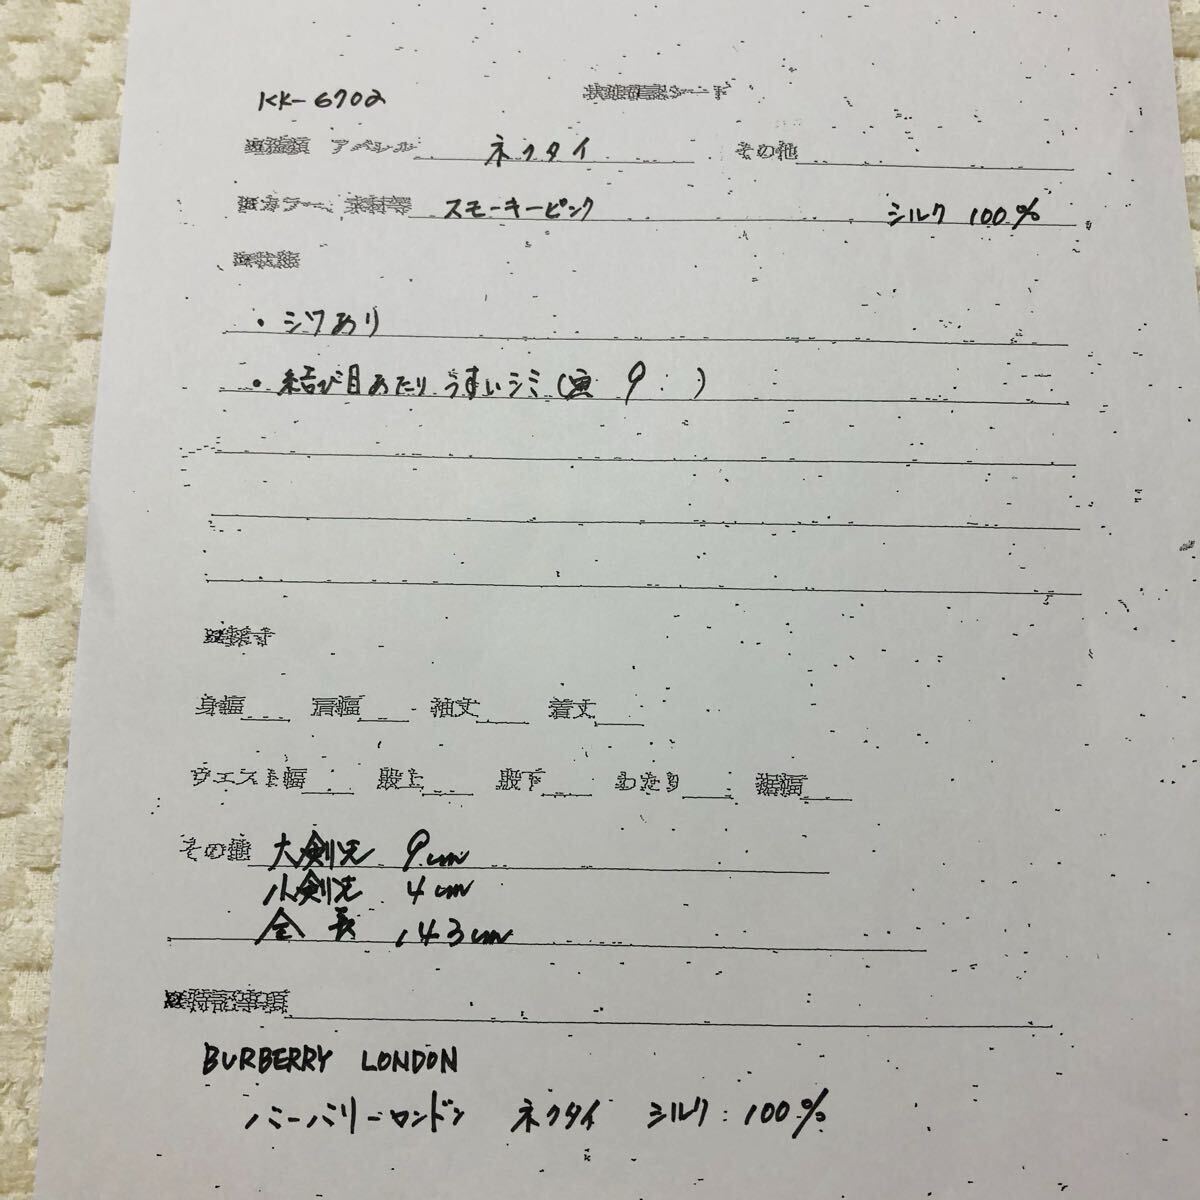 KK-6702 状態確認シート
※種類 アパレル ネクタイ その他
※カラー、素材等 スモーキーピンク シルク 100%
※状態
・シワあり
・結び目あたり うすいシミ(写 9 )
※採寸
身幅 肩幅 袖丈 着丈
ウエスト幅 股上 股下 わたり 裾幅
その他 大剣先 9cm
小剣先 4cm
全長 143cm
※特記事項
BURBERRY LONDON
バーバリーロンドン ネクタイ シルク:100%